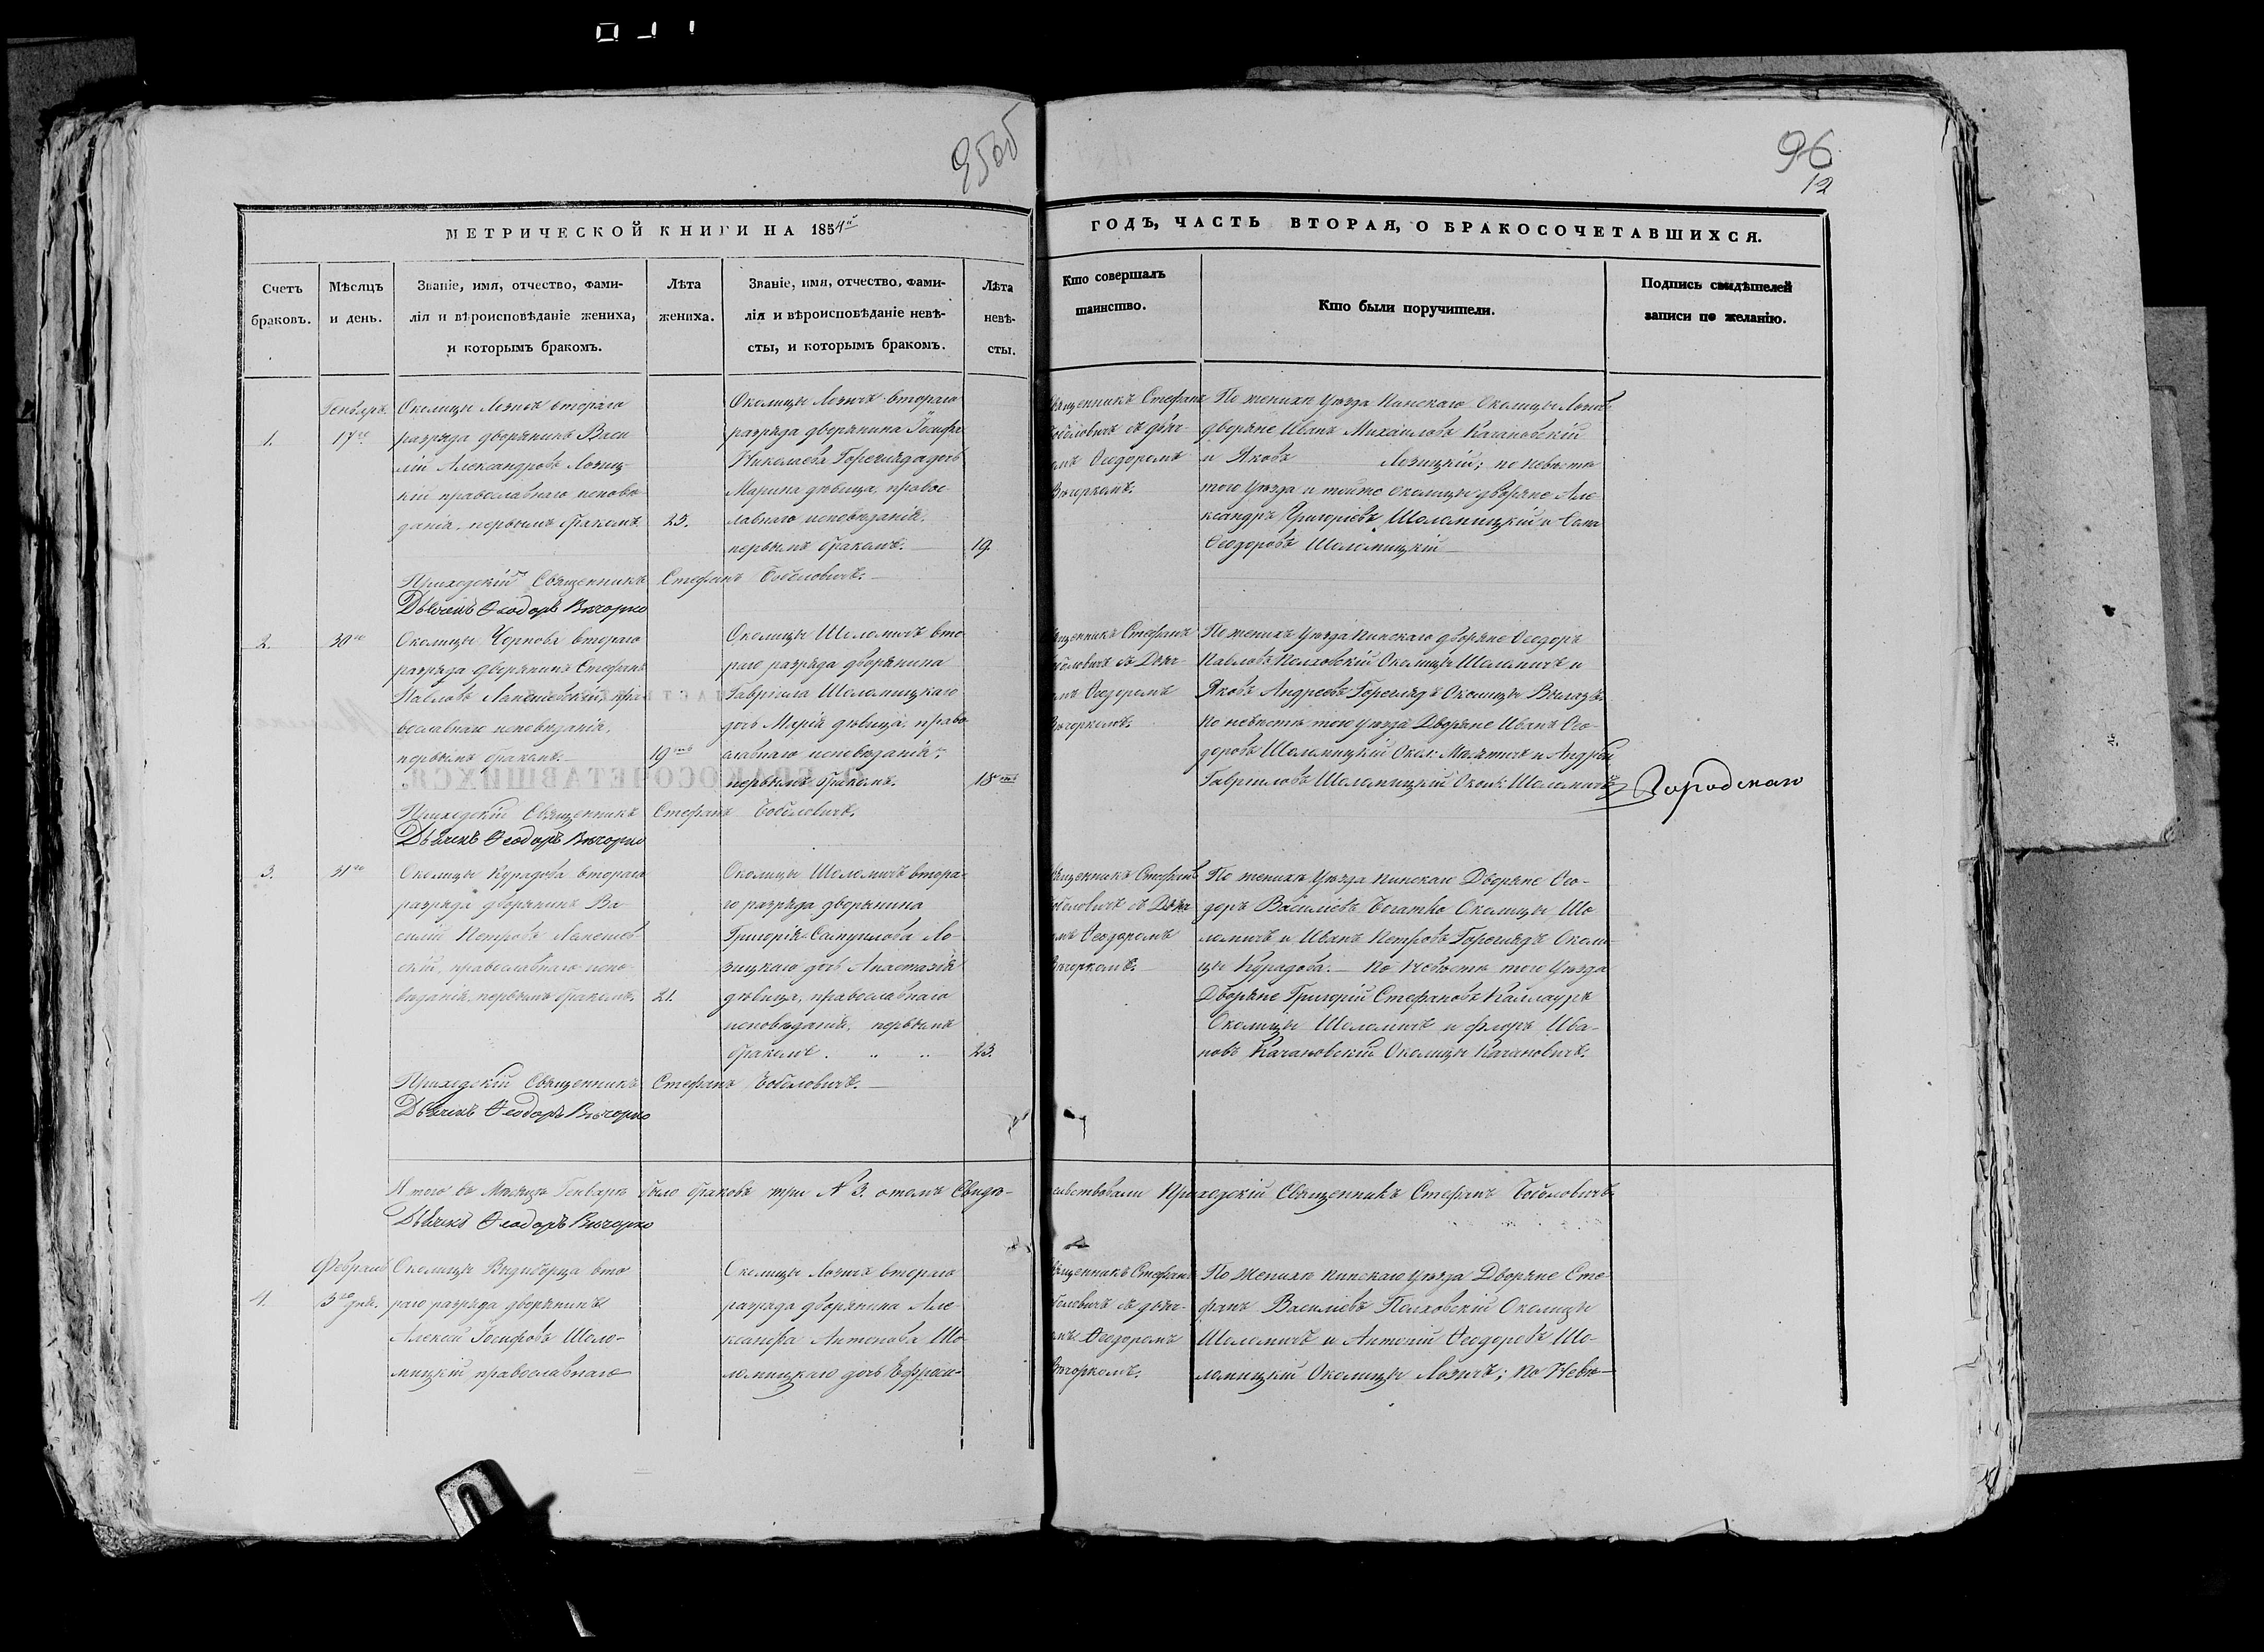 95об
96
12
МЕТРИЧЕСКОЙ КНИГИ НА 1854й
ГОДЪ, ЧАСТЬ ВТОРАЯ, О БРАКОСОЧЕТАВШИХСЯ.
Счетъ
браковъ.
Мѣсяцъ
и день.
Званіе, имя, отчество, фами-
лія и вѣроисповѣданіе жениха,
и которымъ бракомъ.
Лѣта
жениха.
Званіе, имя, отчество, фами-
лія и вѣроисповѣданіе невѣ-
сты, и которымъ бракомъ.
Лѣта
невѣ-
сты.
Кто совершалъ
таинство.
Кто были поручители.
Подпись свидѣтелей
записи по желанію.
1.
Генваръ
17го
Околицы Лозичъ втораго
разряда дворянинъ Васи
лій Александровъ Лозиц-
кій православнаго исповѣ
данія, первымъ бракомъ.
23.
Околицы Лозичъ втораго
разряда дворянина Іосифа
Николаева Гореглядадочь
Марина дѣвица, правос-
лавнаго исповѣданія,
первымъ бракомъ.
19.
Священникъ Стефанъ
Боболовичъ съ дьяч-
омъ Ѳеодоромъ
Вѣчоркомъ.
По женихѣ уѣзда Пинскаго Околицы Лозичъ
дворяне Иванъ Михаиловъ Качановскій
и Яковъ Лозицкій; по невѣстѣ
того уѣзда и тойже околицы дворяне Але
ксандръ Григоріевъ Шоломицкій и
Ѳеодоровъ Шоломицкій
Приходскій Священникъ Стефанъ Боболовичъ.
Дьячекъ Ѳеодоръ Вѣчорко
2.
30го
Околицы Чернова втораго
разряда дворянинъ Стефанъ
Павловъ Лапошовскій, пра
вославнаго исповѣданія,
первымъ бракомъ.
19ть
Околицы Шоломичъ вто
раго разряда дворянина
Гавріила Шоломицкаго
дочь Марія дѣвица, право
славнаго исповѣданія,
первымъ бракомъ.
18ть
Священникъ Стефанъ
Боболовичъ съ Дьяч-
омъ Ѳеодоромъ
Вѣчоркомъ.
По женихѣ уѣзда Пинскаго дворяне Ѳеодоръ
Павловъ Полховскій Околицы Шоломичъ и
Яковъ Андреевъ Гореглядъ Околицы
по невѣстѣ того уѣзда Дворяне Иванъ Ѳео-
доровъ Шоломицкій Окол: и Андрей
Гавриловъ Шоломицкій Окол: Шоломичъ
Приходскій Священникъ Стефанъ Боболовичъ.
Дьячекъ Ѳеодоръ Вѣчорко
3.
31го
Околицы Курадова втораго
разряда дворянинъ Ва-
силій Петровъ Лапошов
скій, православнаго испо-
вѣданія, первымъ бракомъ.
21.
Околицы Шоломичъ втора-
го разряда дворянина
Григорія Самуилова Ло-
зицкаго дочь Анастазія
дѣвица, православнаго
исповѣданія, первымъ
бракомъ.
23.
Священникъ Стефанъ
Боболовичъ съ Дьяч
омъ Ѳеодоромъ
Вѣчоркомъ.
По женихѣ уѣзда Пинскаго Дворяне Ѳео-
доръ Василіевъ Богатко Околицы Шо
ломичъ и Иванъ Петровъ Гореглядъ Околи-
цы Курадова. — По Невѣстѣ того уѣзда
Дворяне Григорій Стефановъ Каллауръ
Околицы Шоломичъ и Флоръ Ива-
новъ Качановскій Околицы Качановичъ.
Приходскій Священникъ Стефанъ Боболовичъ.
Дьячекъ Ѳеодоръ Вѣчорко
Итого въ Мѣсяцѣ Генварѣ было браковъ три N 3. о томъ Свидѣ-
тельствовали Приходскій Священникъ Стефанъ Боболовичъ.
Дьячекъ Ѳеодоръ Вѣчорко
4.
Февраль
3го дня.
Околицы Выдиборца вто
раго разряда дворянинъ
Алексій Іосифовъ Шоло-
мицкій православнаго
Околицы Лозичъ втораго
разряда дворянина Але-
ксандра Антонова Шо-
ломицкаго дочь Ефроси-
Священникъ Стефанъ
Боболовичъ съ дьяч-
омъ Ѳеодоромъ
Вѣчоркомъ.
По Женихѣ Пинскаго уѣзда Дворяне Сте
фанъ Василіевъ Полховскій Околицы
Шоломичъ и Антоній Ѳеодоровъ Шо-
ломицкій Околицы Лозичъ; по Невѣ-